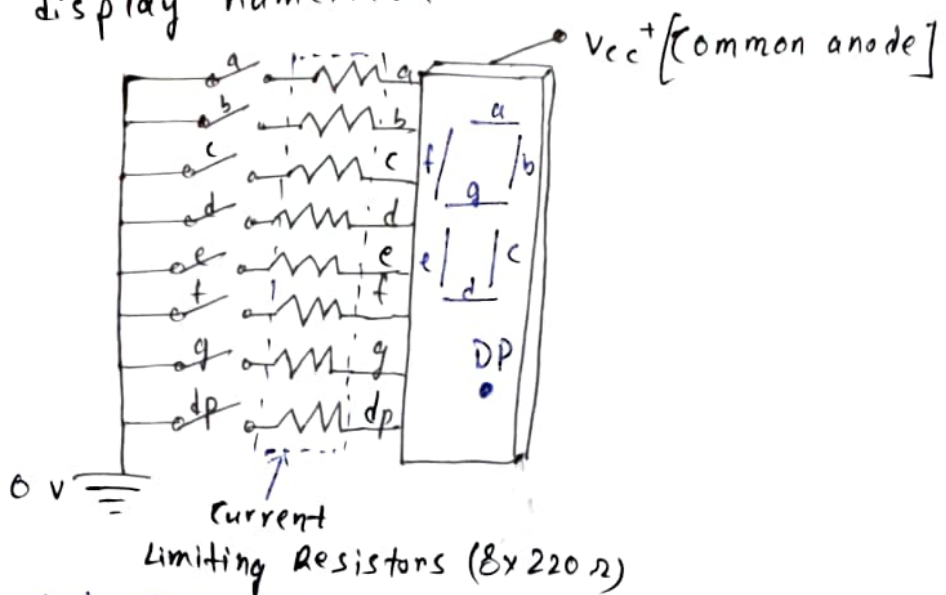 display
Vcc+ [Common anode]
a a
b b
c c
d d
e e
f f
g g
dp dp
a
f b
g
e c
d
DP
0 V
Current
Limiting Resistors (8x220 Ω)